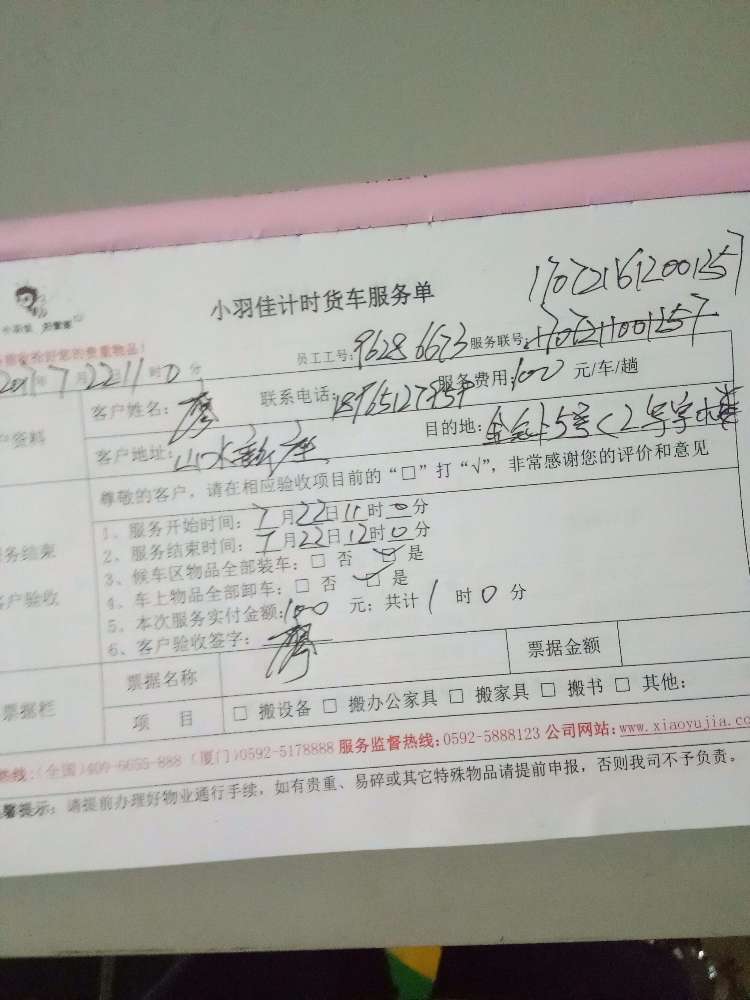 170721612001257
小羽佳计时货车服务单
小羽佳 好管家
请您验收恰好您的贵重物品!
员工工号:96286673 服务联号:
2017年7月22日11时0分
客户姓名:廖 联系电话: 服务费用:100元/车/趟
客户地址:山水 目的地:
资料
尊敬的客户,请在相应验收项目前的“□”打“√”,非常感谢您的评价和意见
1、服务开始时间:7月22日11时0分
2、服务结束时间:7月22日12时0分
服务结束
3、候车区物品全部装车:□ 否 □ 是
4、车上物品全部卸车:□ 否 □ 是
客户验收
5、本次服务实付金额:100 元;共计1时0分
6、客户验收签字:廖
票据名称 票据金额
票据栏
项 目 □ 搬设备 □ 搬办公家具 □ 搬家具 □ 搬书 □ 其他:
热线:(全国)400-6655-888 (厦门)0592-5178888 服务监督热线:0592-5888123 公司网站:www.xiaoyujia.co
馨提示:请提前办理好物业通行手续,如有贵重、易碎或其它特殊物品请提前申报,否则我司不予负责。